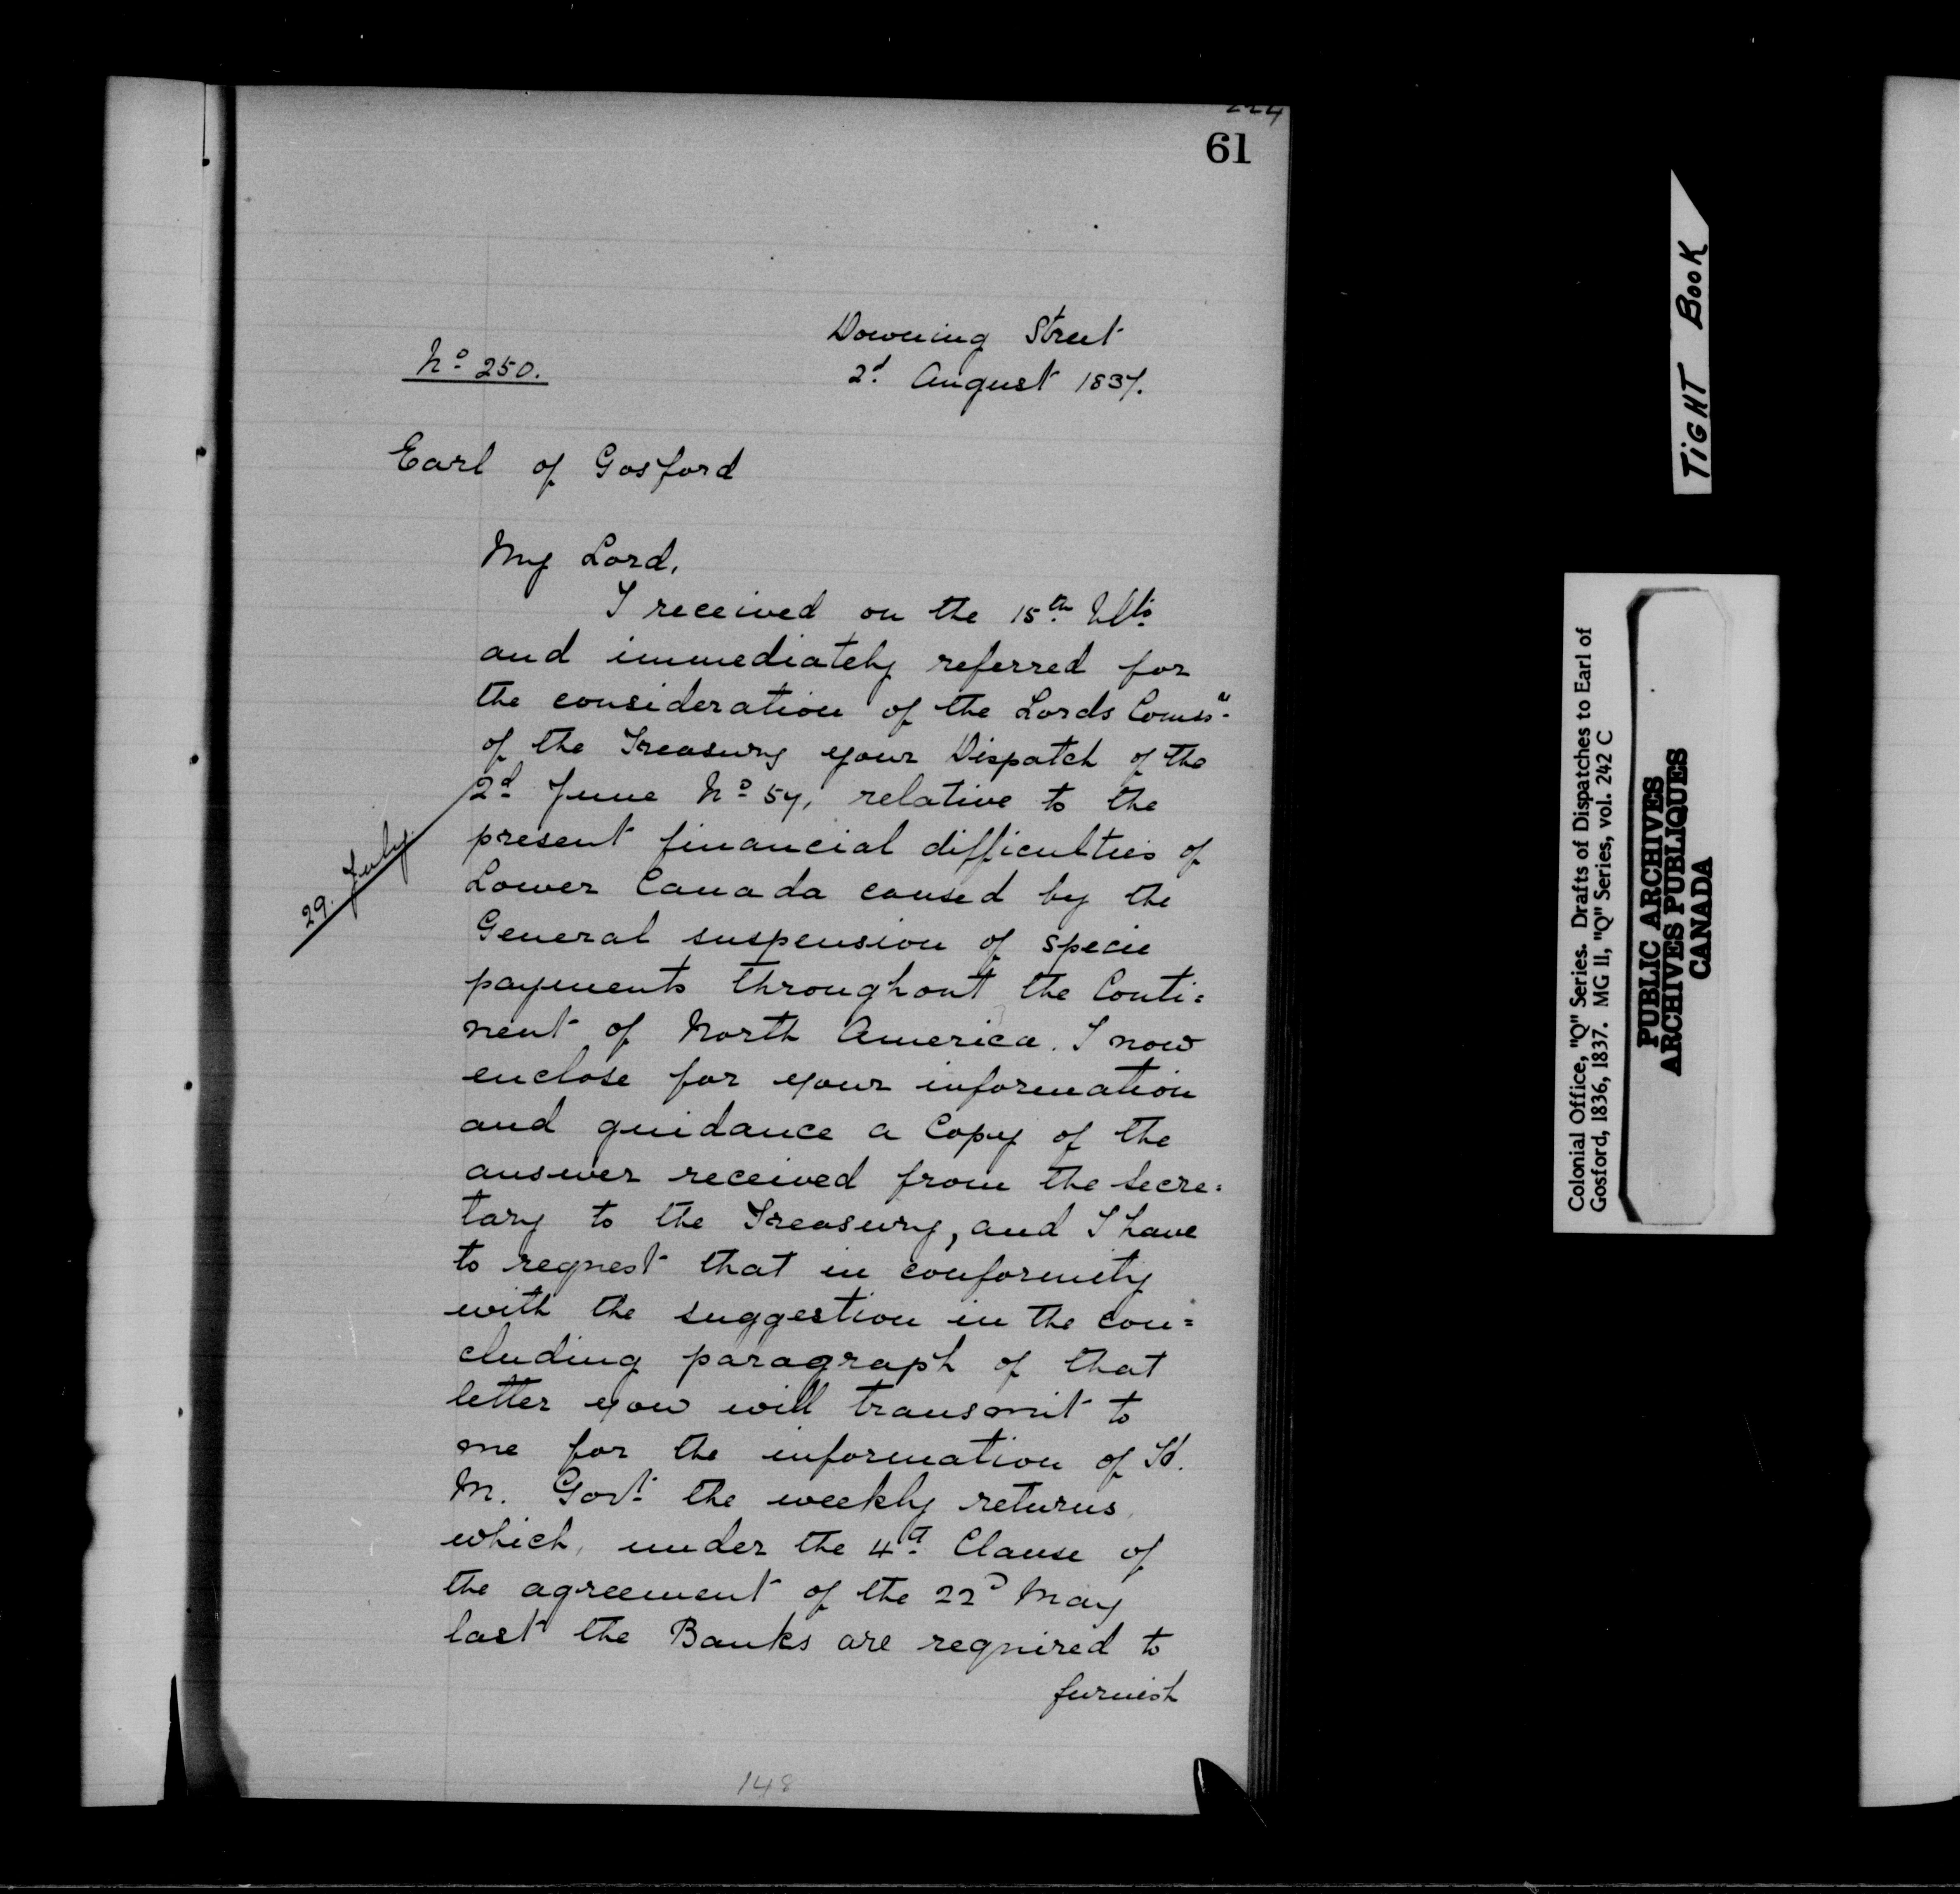 61
Downing Street
No 250.
2d August 1837.
Earl of Gosford
My Lord,
I received on the 15th Ulto
and immediately referred for
the consideration of the Lords Comrs
of the Treasury your Dispatch of the
2d June No 57, relative to the
29. July
present financial difficulties of
Lower Canada caused by the
General suspension of specie
payments throughout the Conti=
nent of North America. I now
enclose for your information
and guidance a Copy of the
answer received from the Secre=
tary to the Treasury, and I have
to request that in conformity
with the suggestion in the con=
cluding paragraph of that
letter you will transmit to
me for the information of H.
M. Govt. the weekly returns,
which, under the 4th Clause of
the agreement of the 22d May
last the Banks are required to
furnish
148
TIGHT BOOK
Colonial Office, "Q" Series. Drafts of Dispatches to Earl of
Gosford, 1836, 1837. MG 11, "Q" Series, vol. 242 C
PUBLIC ARCHIVES
ARCHIVES PUBLIQUES
CANADA